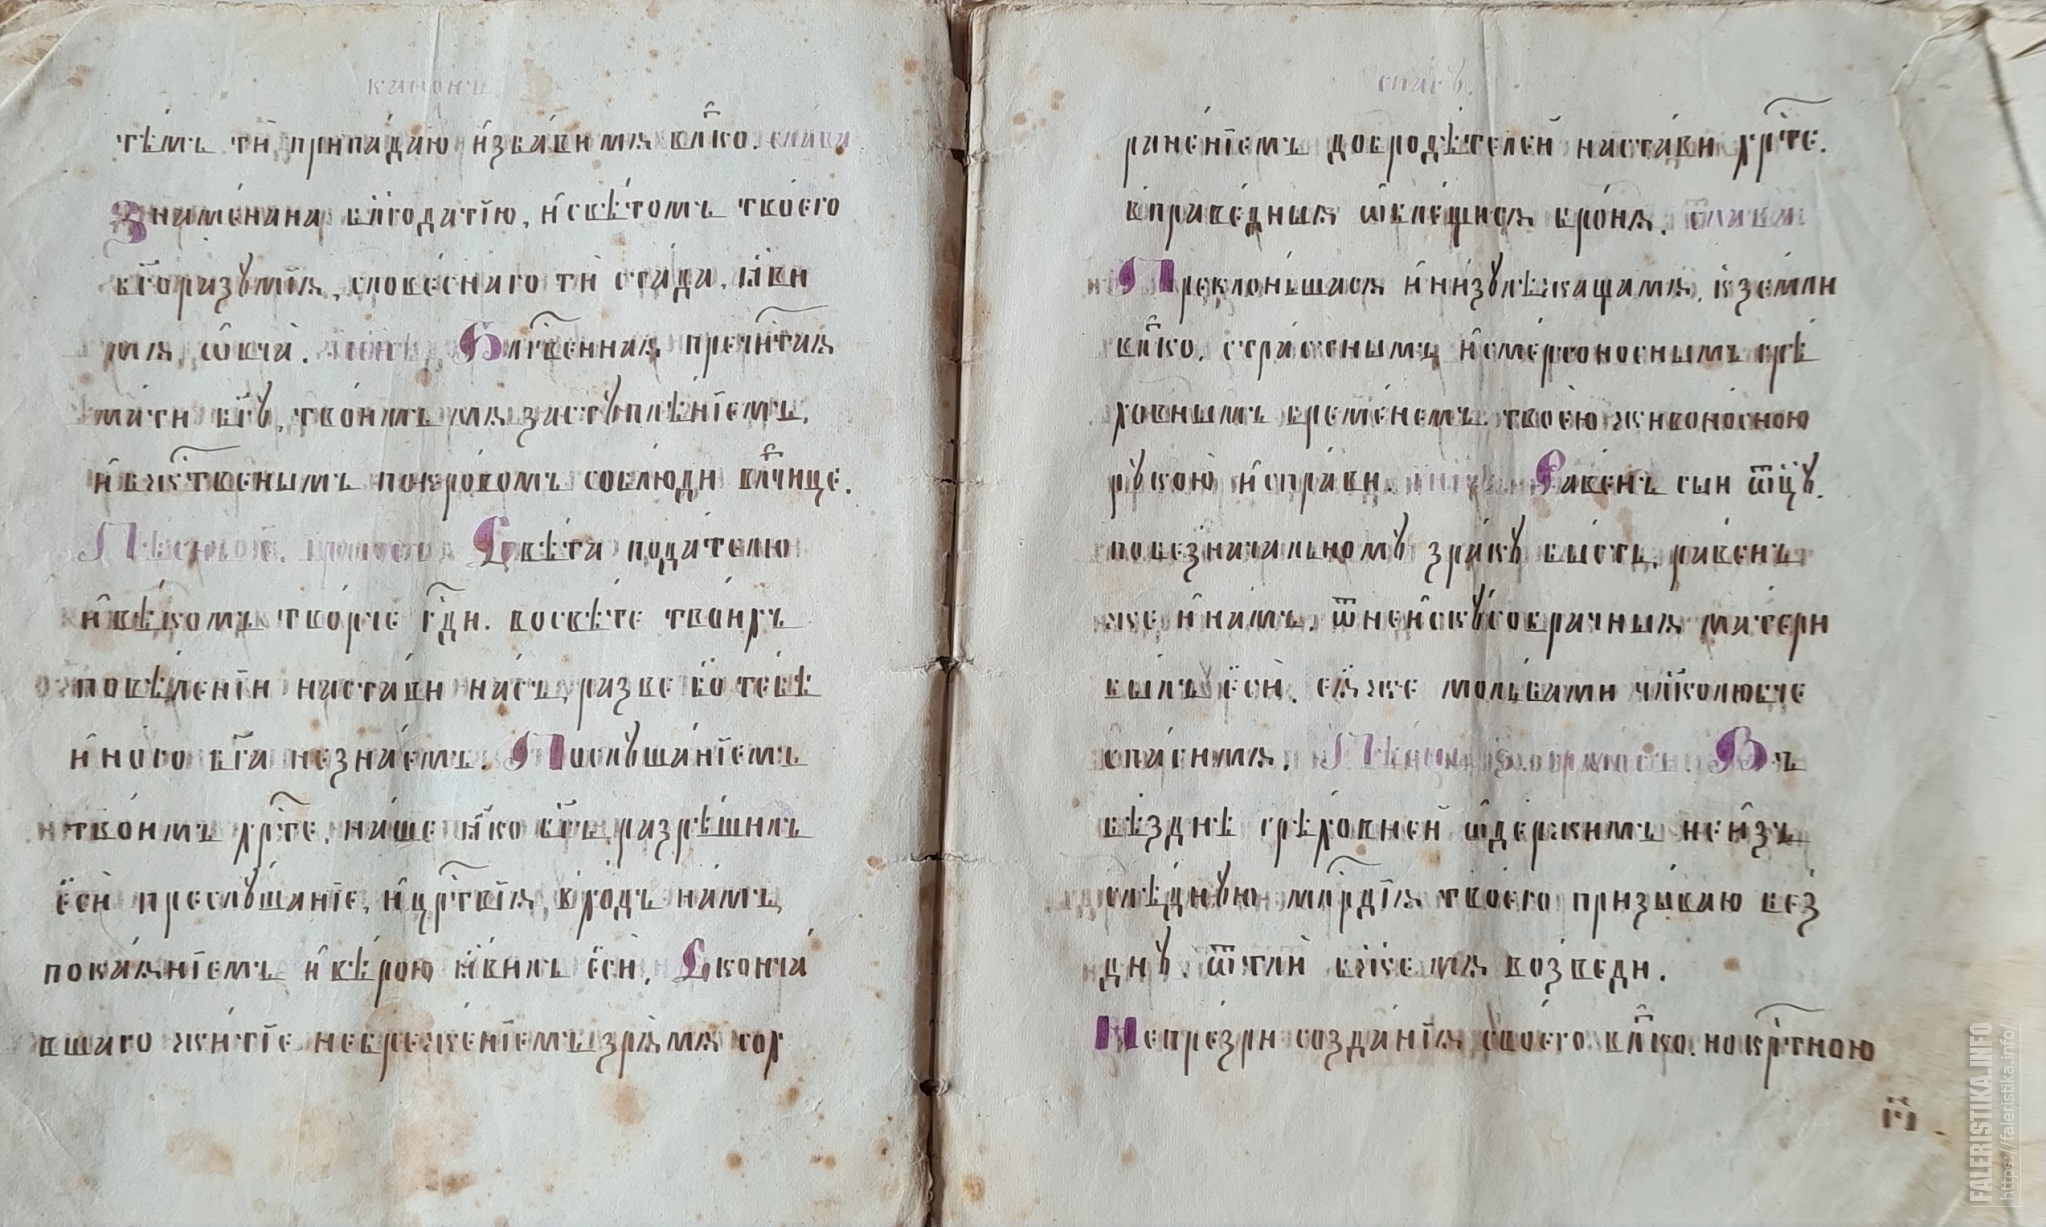 канонъ
тѣ́мъ ти̏ припа́даю и҆зба́ви мѧ влⷣко. слава
Зна́менана блгⷣодатїю, и҆свѣ́томъ твоего
бг҃оразꙋ́мїѧ, слове́снаго ти̏ ста́да, ꙗ҆ви
мѧ, ѡ҆вча̀. Бл҃гⷭ҇ве́ннаѧ пречⷭ҇таѧ
ма́ти бг҃ꙋ, твои́мъ мѧ застꙋпле́нїемъ,
и҆бжⷭ҇твеннымъ покро́вомъ соблюди влⷣчице.
Пѣснь Свѣ́та пода́телю
и҆вѣ́комъ тво́рче гдⷭ҇и. восвѣ́те твои́хъ
повѣле́нїи наста́ви на́съ, ра́зве бо тебѣ̀
и҆ного бг҃а незна́емъ. Послꙋша́нїемъ
твои́мъ хрⷭ҇те, на́ше ꙗ҆́ко бг҃ъ, разрѣши́лъ
є҆сѝ преслꙋ́шанїе, и҆црⷭ҇твїѧ, вхо́дъ на́мъ,
покаѧ́нїемъ и҆вѣ́рою ꙗ҆ви́лъ є҆сѝ. Сконча́
вшаго жи́тїе небреже́нїемъ зрѧ́ мѧ сох
спасꙋ.
ране́нїемъ добродѣ́телей наста́ви хрⷭ҇те.
в пра́ведныѧ ѡ҆бле́щисѧ бронѧ̀. слава
Преклони́шасѧ и҆ ни́зꙋ лѣжаща мѧ, кземли
влⷣко. стра́снымъ и҆сме́ртоноснымъ грѣ
хо́внымъ бреме́немъ. твоею живоно́сною
рꙋкою и҆спра́ви. Ра́венъ сын ѿцꙋ̀.
побезнача́льномꙋ зра́кꙋ бы́сть, ра́вен
же и҆ на́мъ. ѿнеи҆скꙋ́собрачныѧ ма́тери
бы́лъ є҆сѝ. еѧ́же мольбами чл҃колюбче
спаси мѧ. Пѣснь Въ
бѣ́зднѣ грѣхо́вней ѡ҆держи́мъ неи҆зъ
слѣ́днꙋю млⷭ҇рдїѧ твоего призываю без
днꙋ. ѿтлѝ бж҃е мѧ возведи.
Непре́зри созда́нїѧ своего влⷣко. нокрⷭ҇тною
FALERISTIKA.INFO
https://faleristika.info/